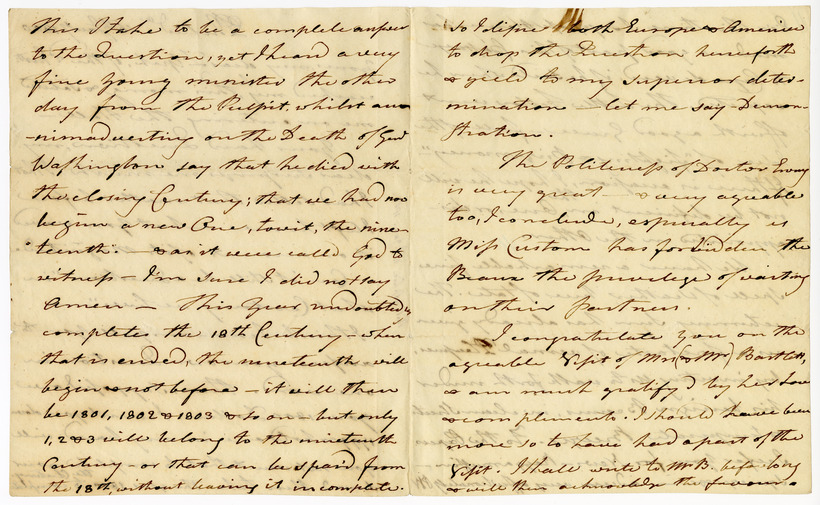 This I take to be a complete answer
to the Question, yet I heard a very
fine young minister the other
day from the Pulpit, whilst an-
-nimadverting on the Death of Genl
Washington say that he died with
the closing Century; that we had now
begun a new One, towit, the nine-
"teenth". — & as it were called God to
witness — I'm sure I did not say
Amen — This Year undoubtedly
completes the 18th Century — when
that is ended, the nineteenth will
begin & not before — it will then
be 1801, 1802 & 1803 & so on — but only
1, 2 & 3 will belong to the nineteenth
Century — or that can be spaid from
the 18th, without leaving it incomplete.
So I desire both Europe & America
to drop the Question henceforth
& yield to my superior deter-
mination — let me say Demon-
stration.
The Politeness of Doctor
is very great — & very agreable
too, I conclude, especially as
Miss Custom has forbidden the
Beaux the privilege of waiting
on their Partners.
I congratulate you on the
agreable Visit of Mrs (& Mr) Bartlett,
& am much gratify'd by her Love
& compliments. I should have been
more so to have had a part of the
Visit. I shall write to Mr B. before long
& will then acknowledge the favour